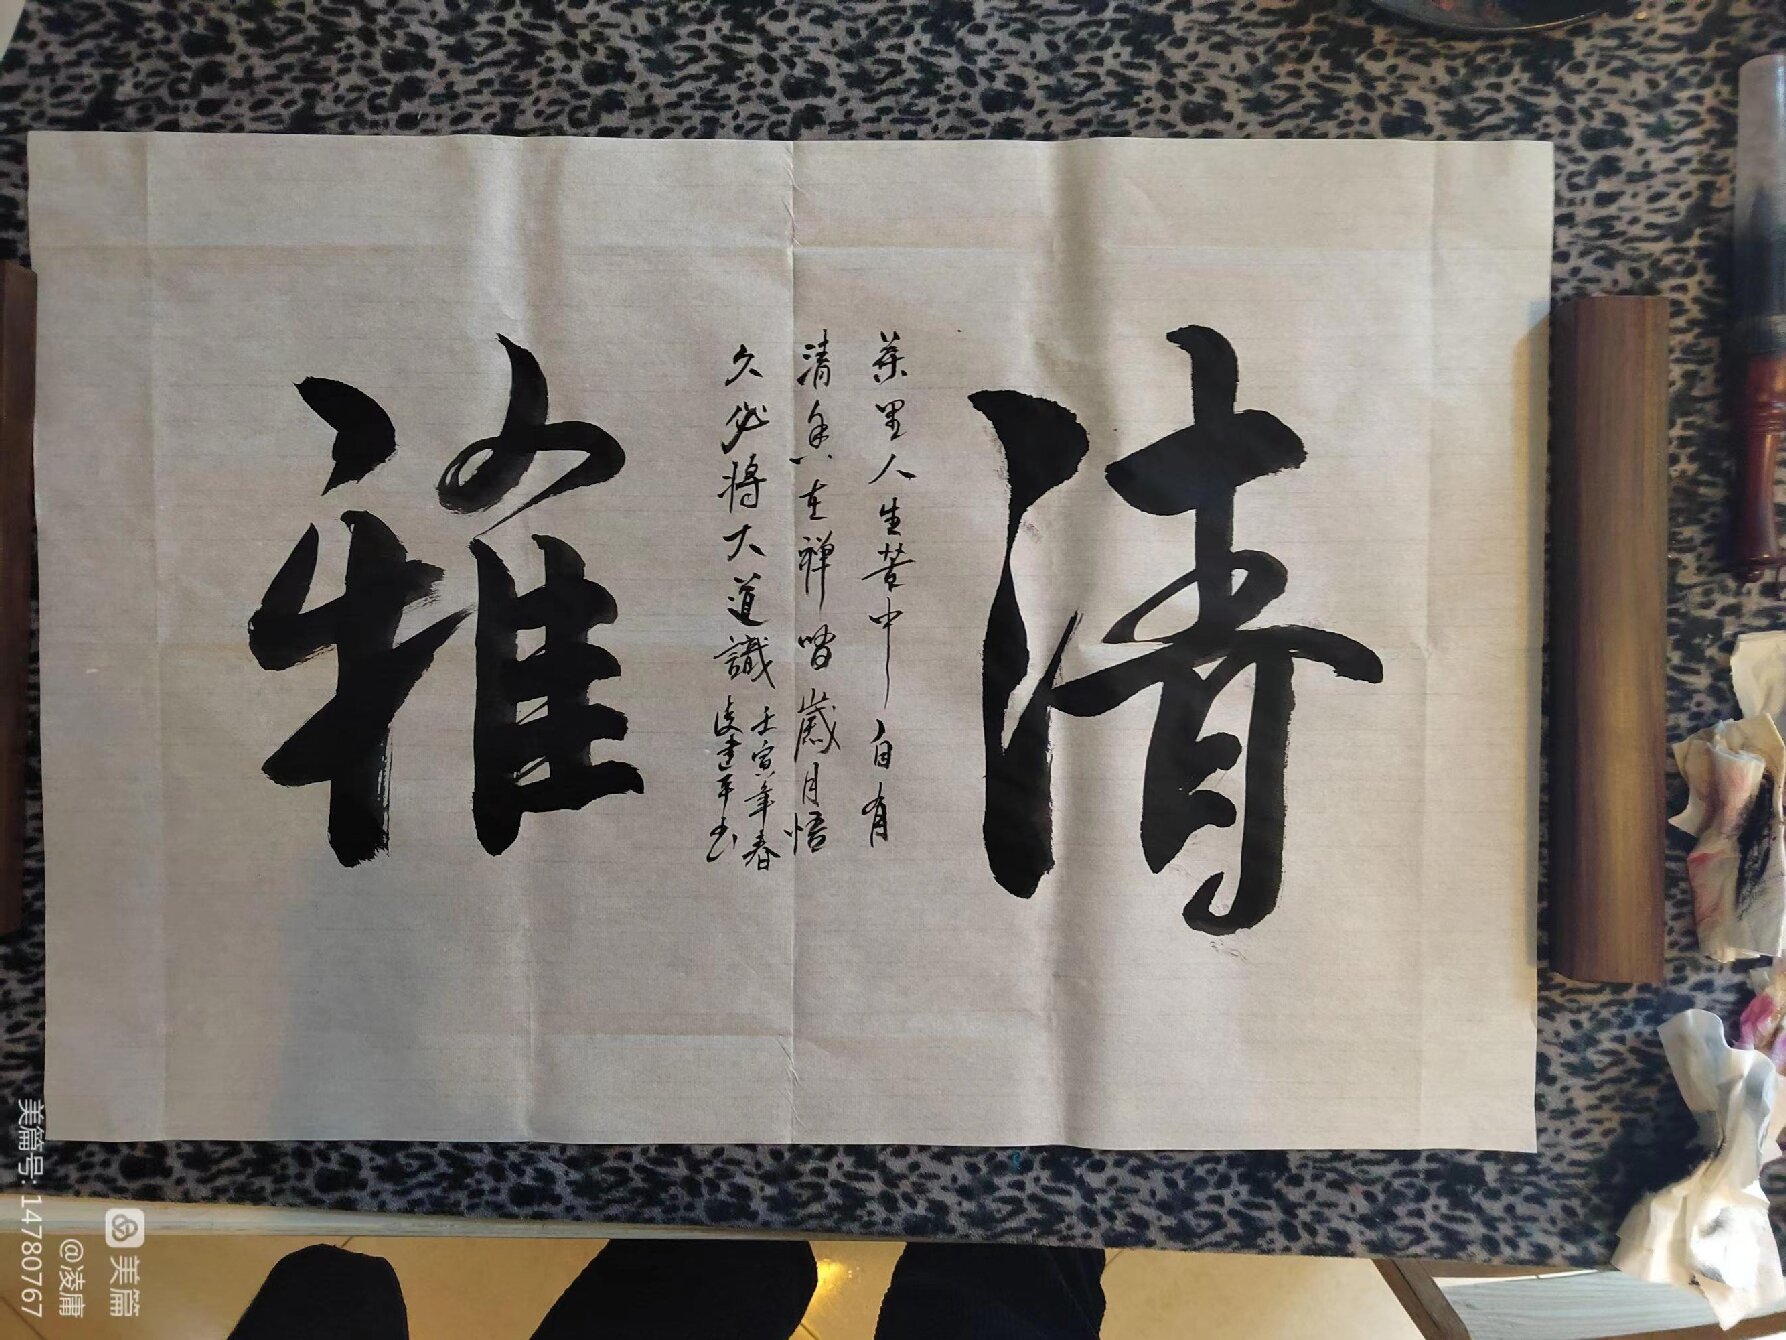 清
茶里人生苦中自有
清香在禅岁月悟
久必将大道識
壬寅年春
凌建平书
雅
美篇
@凌庸
美篇号: 14780767